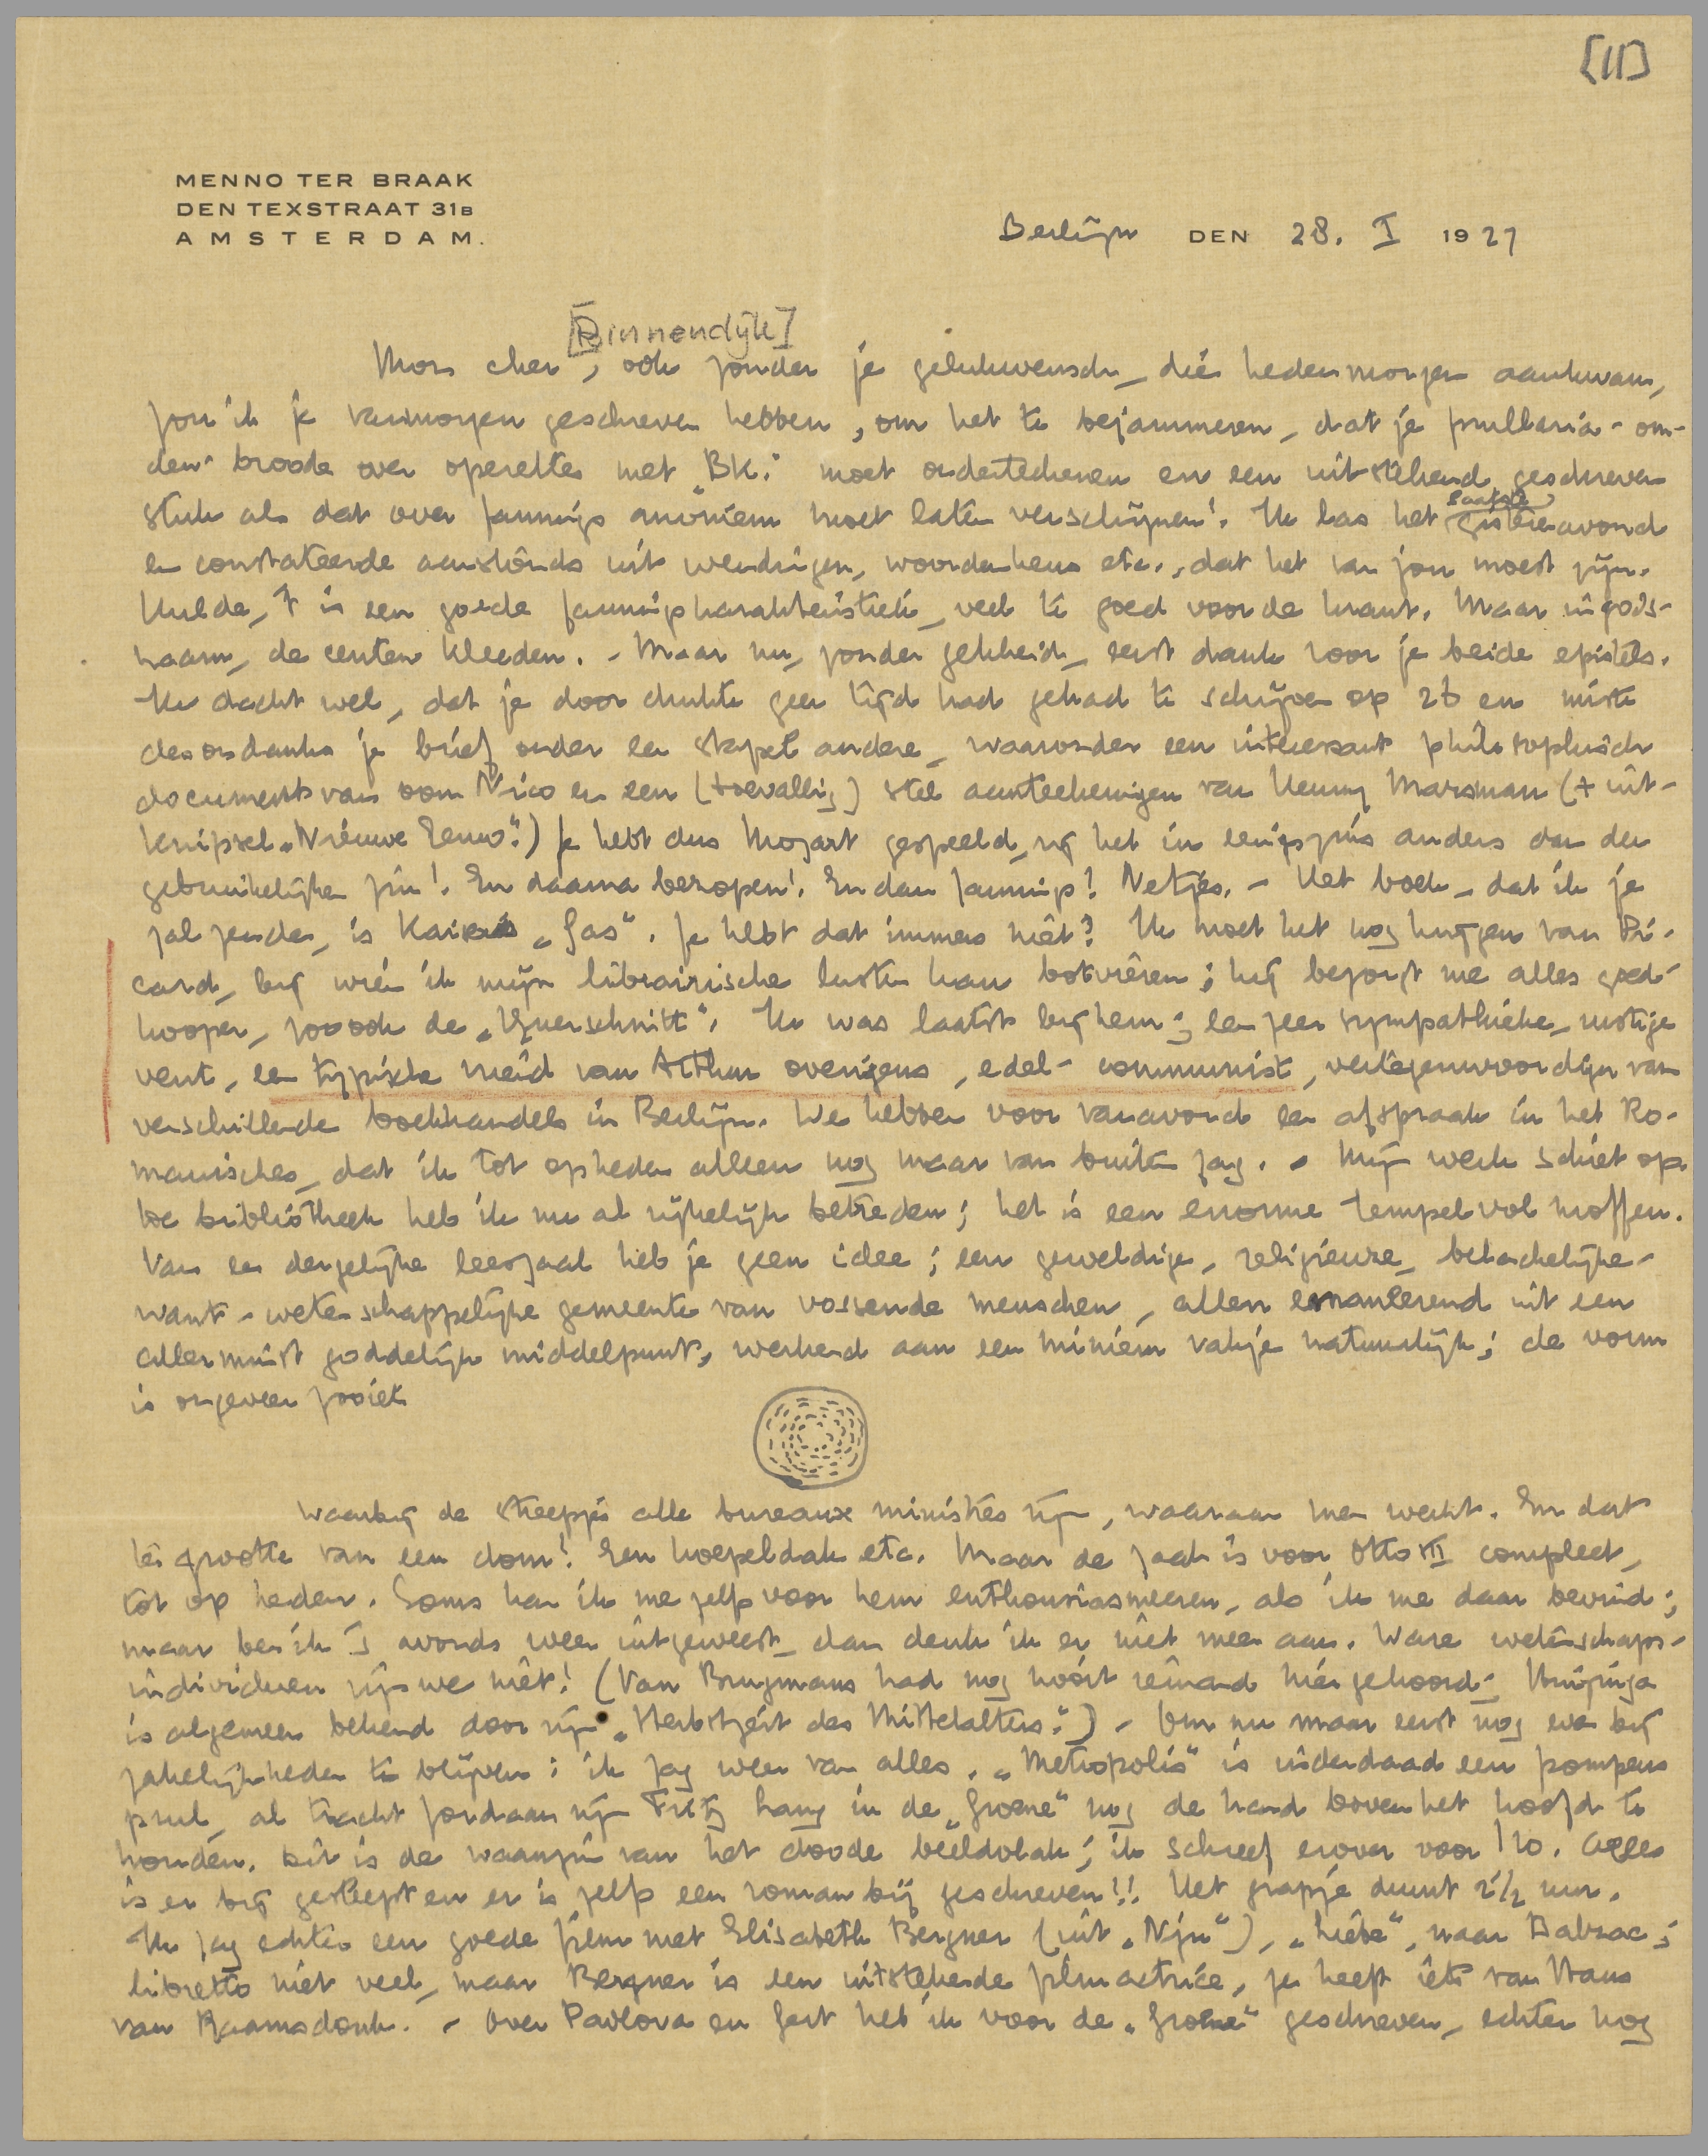 [II]
MENNO TER BRAAK
DEN TEXSTRAAT 31B
AMSTERDAM.
Berlijn DEN 28. I 1927
[Binnendijk]
Mon cher, ook zonder je gelukwensch, die hedenmorgen aankwam,
zou ik je vanmorgen geschreven hebben, om het te bejammeren, dat je prullaria-om-
den-broode over operettes met „BK.” moet onderteekenen en een uitstekend geschreven
stuk als dat over Jannings anoniem moet laten verschijnen! Ik las het laatste gisterenavond
en constateerde aanstonds uit wendingen, woordenkeus etc., dat het van jou moest zijn.
Hulde, 't is een goede Janningskarakteristiek, veel te goed voor de krant. Maar in gods-
naam, de centen kleeden. - Maar nu, zonder gekheid, eerst dank voor je beide epistels.
Ik dacht wel, dat je door drukte geen tijd had gehad te schrijven op 26 en miste
desondanks je brief onder een stapel andere, waaronder een interessant philosophisch
document van oom Nico en een (toevallig) stel aanteekeningen van Henny Marsman (+ uit-
knipsel „Nieuwe Eeuw”.) Je hebt dus Mozart gespeeld, zij het in eenigszins anders dan den
gebruikelijken zin! En daarna bezopen! En dan Jannings! Netjes. - Het boek, dat ik je
zal zenden, is Kaisers „Gas”. Je hebt dat immers niet? Ik moet het nog krijgen van Pi-
card, bij wien ik mijn librairische lusten kan botvieren; hij bezorgt me alles goed-
kooper, zoo ook de „Querschnitt”. Ik was laatst bij hem; een zeer sympathieke, rustige
vent, een typische vriend van Arthur overigens, edel-communist, vertegenwoordiger van
verschillende boekhandels in Berlijn. We hebben voor vanavond een afspraak in het Ro-
manisches, dat ik tot op heden alleen nog maar van buiten zag. - Mijn werk schiet op.
De bibliotheek heb ik nu al rijkelijk betreden; het is een enorme tempel vol moffen.
Van een dergelijke leeszaal heb je geen idee; een geweldige, religieuze, belachelijke-
want-wetenschappelijke gemeente van vossende menschen, allen emaneerend uit een
allerminst goddelijk middelpunt, werkend aan een miniem vakje natuurlijk; de vorm
is ongeveer zooiets
waarbij de streepjes alle bureaux ministres zijn, waaraan men werkt. En dat
ter grootte van een dom! Een koepeldak etc. Maar de zaak is voor Otto III compleet,
tot op heden. Soms kan ik me zelfs voor hem enthousiasmeeren, als ik me daar bevind;
maar ben ik 's avonds weer uitgeweest, dan denk ik er niet meer aan. Ware wetenschaps-
individuen zijn we niet! (Van Brugmans had nog nooit iemand hier gehoord; Huizinga
is algemeen bekend door zijn „Herbstzeit des Mittelalters”.) - Om nu maar eerst nog even bij
zakelijkheden te blijven: ik zag weer van alles. „Metropolis” is inderdaad een pompeus
prul, al tracht Jordaan zijn Fritz Lang in de „Groene” nog de hand boven het hoofd te
houden. Dit is de waanzin van het doode beeldvlak; ik schreef erover voor i10. Alles
is er bij gesleept en er is zelfs een roman bij geschreven!! Het grapje duurt 2½ uur.
Ik zag echter een goede film met Elisabeth Bergner (uit „Nju”), „Liebe”, naar Balzac;
libretto niet veel, maar Bergner is een uitstekende filmactrice, ze heeft iets van Wraus
van Raamsdonk. - Over Pavlova en Gert heb ik voor de „Groene” geschreven, echter nog